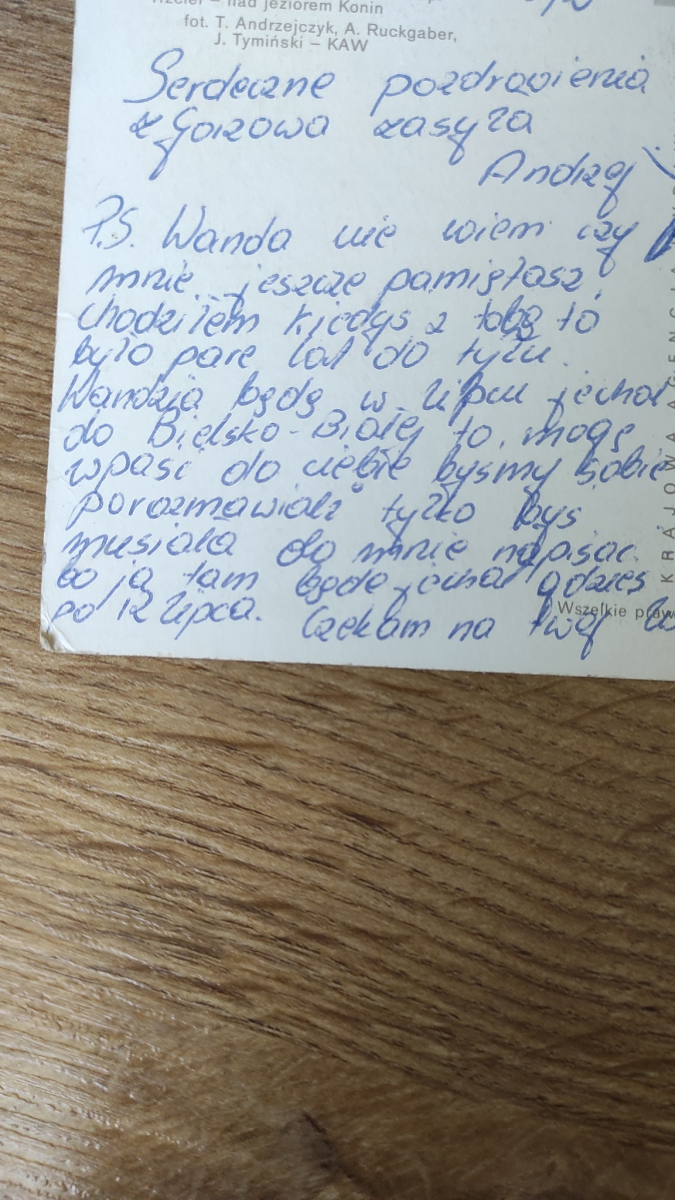 nad jeziorem Konin
fot. T. Andrzejczyk, A. Ruckgaber,
J. Tymiński – KAW
Serdeczne pozdrowienia
z Gorzowa zasyła
Andrzej
P.S. Wanda nie wiem czy
mnie jeszcze pamiętasz,
chodziłem kiedyś z tobą to
było pare lat do tyłu.
Wandzia będę w lipcu jechał
do Bielsko-Białej to mogę
wpaść do ciebie byśmy sobie
porozmawiali tylko byś
musiała do mnie napisać.
bo ja tam będe jechał gdzieś
po 12 lipca. Czekam na twój
Wszelkie praw
KRAJOWA AGENCJA